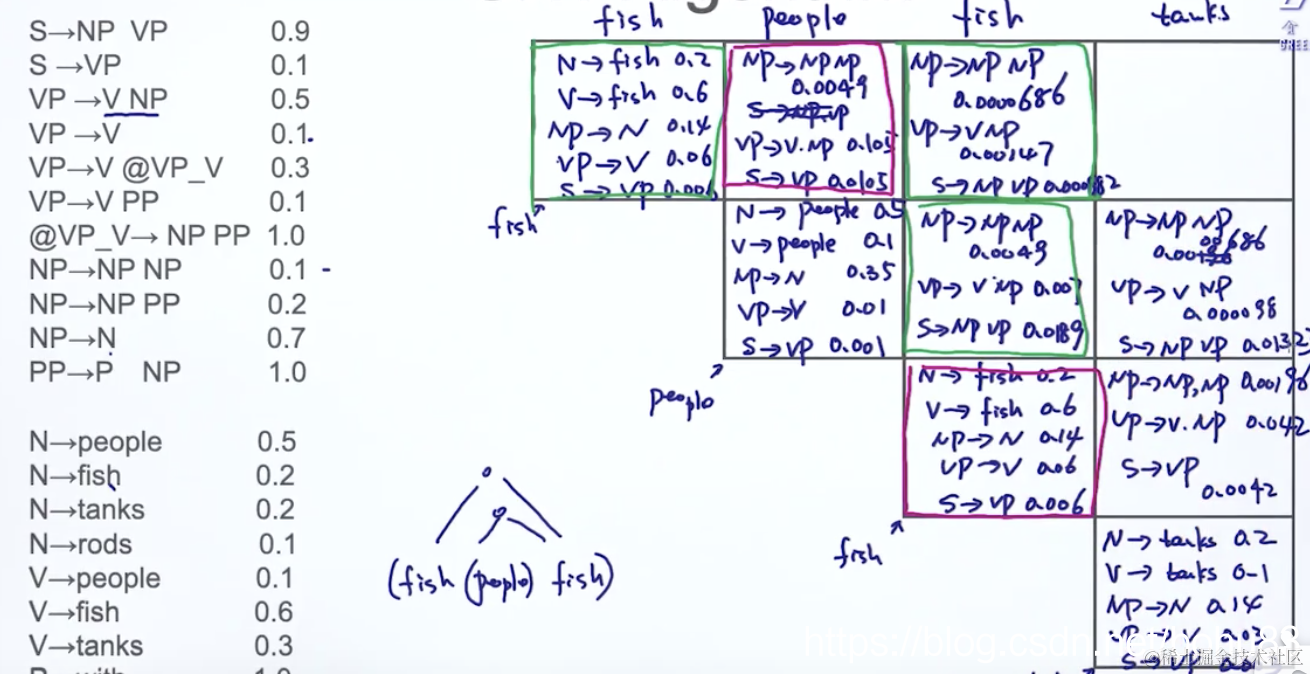 fish people fish tanks
S→NP VP 0.9
S →VP 0.1
VP →V NP 0.5
VP →V 0.1
VP→V @VP_V 0.3
VP→V PP 0.1
@VP_V→ NP PP 1.0
NP→NP NP 0.1
NP→NP PP 0.2
NP→N 0.7
PP→P NP 1.0
N→people 0.5
N→fish 0.2
N→tanks 0.2
N→rods 0.1
V→people 0.1
V→fish 0.6
V→tanks 0.3
N→fish 0.2
V→fish 0.6
NP→N 0.14
VP→V 0.06
S→VP 0.006
NP→NP NP
0.0049
S→NP VP
VP→V.NP 0.105
S→VP 0.0105
NP→NP NP
0.0000686
VP→V NP
0.00147
S→NP VP 0.000882
fish
N→people 0.5
V→people 0.1
NP→N 0.35
VP→V 0.01
S→VP 0.001
NP→NP NP
0.0049
VP→V NP 0.007
S→NP VP 0.0189
NP→NP NP
VP→V NP
0.000098
S→NP VP 0.0132
people
N→fish 0.2
V→fish 0.6
NP→N 0.14
VP→V 0.06
S→VP 0.006
NP→NP,NP 0.00196
VP→V.NP 0.042
S→VP
0.0042
fish
(fish (people) fish)
N→tanks 0.2
V→tanks 0.1
NP→N 0.14
VP→V 0.03
@稀土掘金技术社区